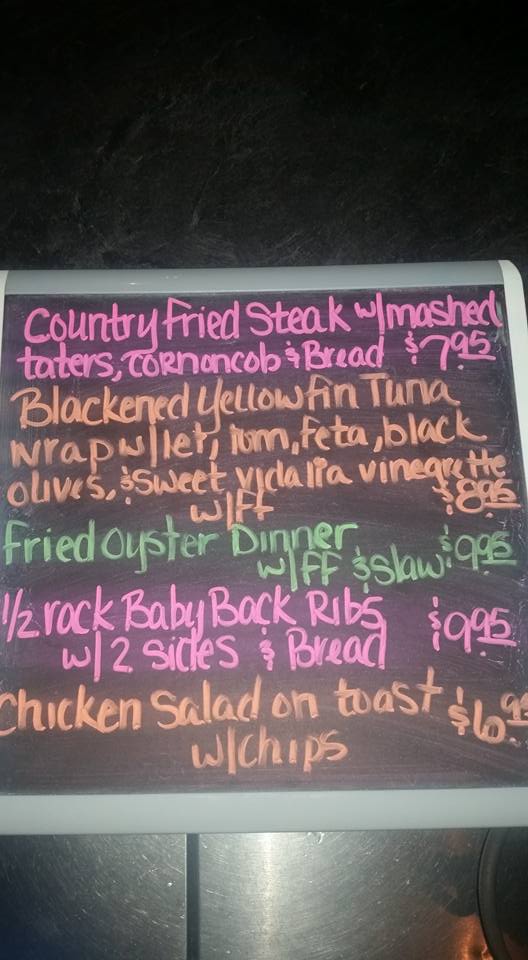 Country Fried Steak w/mashed
taters, cornoncob & Bread $7.95
Blackened Yellowfin Tuna
wrap w/let, tom, feta, black
olives, & sweet vidalia vinegrette
w/ff $8.95
Fried Oyster Dinner
w/ff & slaw $9.95
1/2 rack Baby Back Ribs $9.95
w/ 2 sides & Bread
Chicken Salad on toast $6.95
w/chips